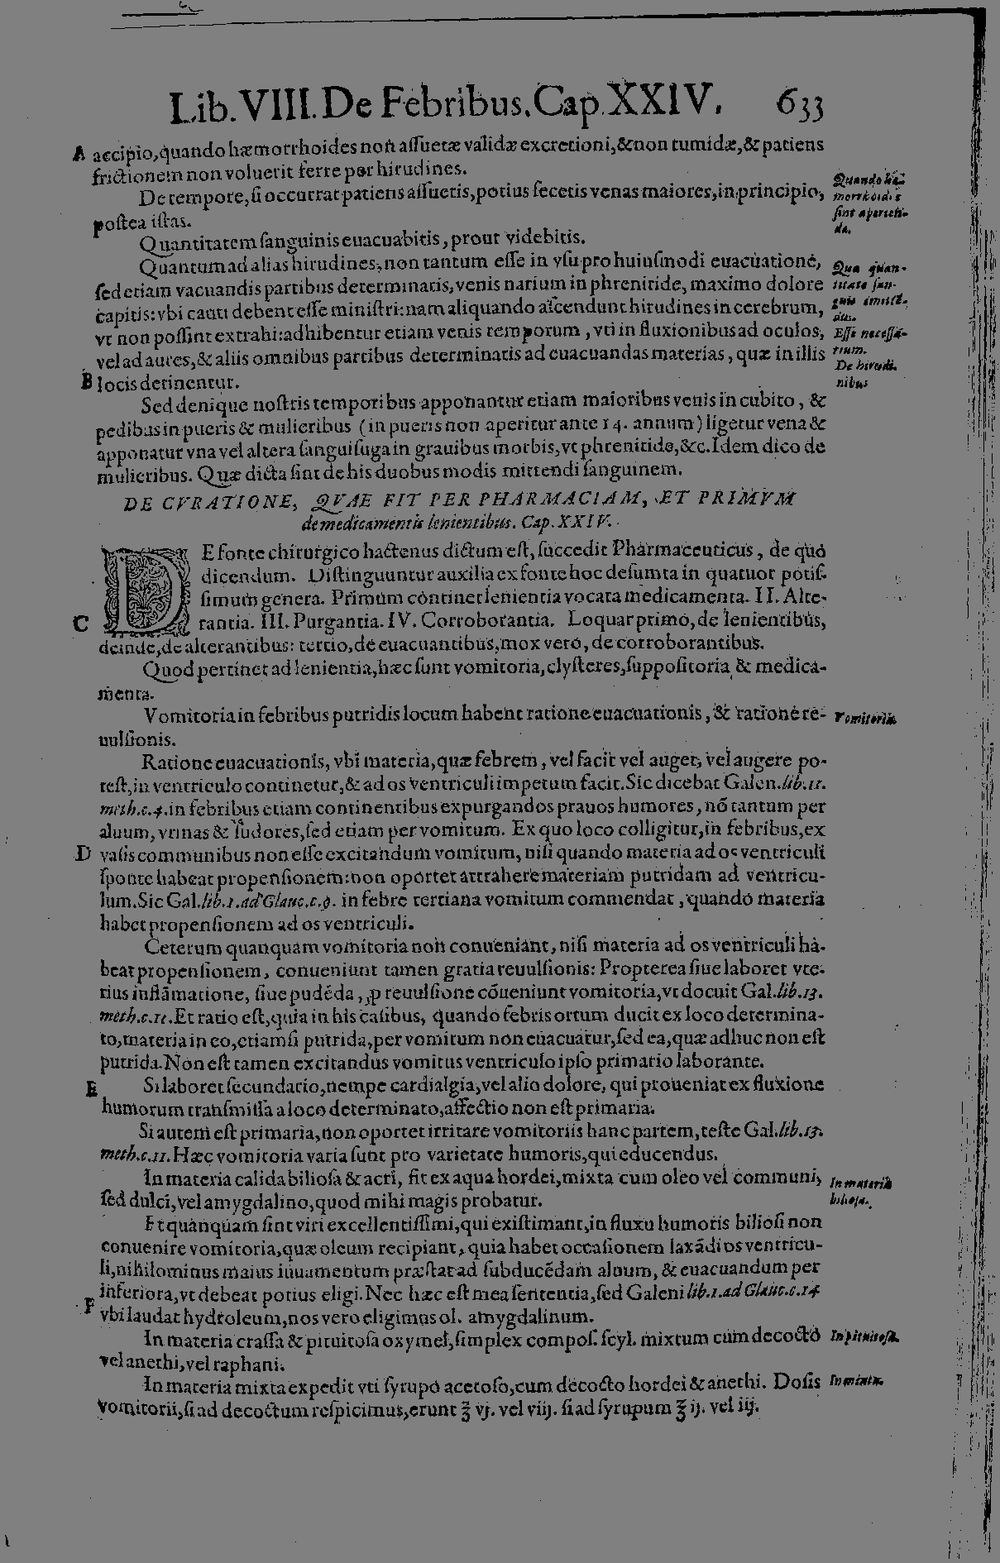 Lib. VIII. De Febribus. Cap. XXIV. 633
A accipio, quando hæmorrhoides non assuetæ validæ excretioni, & non tumidæ, & patiens
frictionem non voluerit ferre per hirudines.
De tempore, si occurrat patiens assuetis, potius secetis venas maiores, in principio,
postea istas.
Quando hæ-
morrhoides
sint aperien-
da.
Quantitatem sanguinis euacuabitis, prout videbitis.
Quantum ad alias hirudines, non tantum esse in vsu pro huiusmodi euacuatione,
sed etiam vacuandis partibus determinatis, venis narium in phrenitide, maximo dolore
capitis: vbi cauti debent esse ministri: nam aliquando ascendunt hirudines in cerebrum,
vt non possint extrahi: adhibentur etiam venis temporum, vti in fluxionibus ad oculos,
vel ad aures, & aliis omnibus partibus determinatis ad euacuandas materias, quæ in illis
B locis detinentur.
Qua quan-
titate san-
guis
Esse necessa-
rium.
De hirudi-
nibus
Sed denique nostris temporibus apponantur etiam maioribus venis in cubito, &
pedibus in pueris & mulieribus (in pueris non aperitur ante 14. annum) ligetur vena &
apponatur vna vel altera sanguisuga in grauibus morbis, vt phrenitide, &c. Idem dico de
mulieribus. Quæ dicta sint de his duobus modis mittendi sanguinem.
DE CVRATIONE, QVAE FIT PER PHARMACIAM, ET PRIMVM
de medicamentis lenientibus. Cap. XXIV.
DE fonte chirurgico hactenus dictum est, succedit Pharmaceuticus, de quo
dicendum. Distinguuntur auxilia ex fonte hoc desumta in quatuor potis-
simum genera. Primum continet lenientia vocata medicamenta. II. Alte-
C rantia. III. Purgantia. IV. Corroborantia. Loquar primo, de lenientibus,
deinde, de alterantibus: tertio, de euacuantibus, mox vero, de corroborantibus.
Quod pertinet ad lenientia, hæc sunt vomitoria, clysteres, suppositoria & medica-
menta.
Vomitoria in febribus putridis locum habent ratione euacuationis, & ratione re-
uulsionis.
Vomitoria.
Ratione euacuationis, vbi materia, quæ febrem, vel facit vel auget, vel augere po-
test, in ventriculo continetur, & ad os ventriculi impetum facit. Sic dicebat Galen. lib. 11.
meth. c. 4. in febribus etiam continentibus expurgandos prauos humores, nō tantum per
aluum, vrinas & sudores, sed etiam per vomitum. Ex quo loco colligitur, in febribus, ex
D vasis communibus non esse excitandum vomitum, nisi quando materia ad os ventriculi
sponte habeat propensionem: non oportet attrahere materiam putridam ad ventricu-
lum. Sic Gal. lib. 1. ad Glauc. c. 9. in febre tertiana vomitum commendat, quando materia
habet propensionem ad os ventriculi.
Ceterum quanquam vomitoria non conueniant, nisi materia ad os ventriculi ha-
beat propensionem, conueniunt tamen gratia reuulsionis: Propterea siue laboret vte-
rius inflāmatione, siue pudēda, ꝓ reuulsione cōueniunt vomitoria, vt docuit Gal. lib. 13.
meth. c. 11. Et ratio est, quia in his casibus, quando febris ortum ducit ex loco determina-
to, materia in eo, etiamsi putrida, per vomitum non euacuatur, sed ea, quæ adhuc non est
putrida. Non est tamen excitandus vomitus ventriculo ipso primario laborante.
E Si laboret secundario, nempe cardialgia, vel alio dolore, qui proueniat ex fluxione
humorum transmissa a loco determinato, affectio non est primaria.
Si autem est primaria, non oportet irritare vomitoriis hanc partem, teste Gal. lib. 13.
meth. c. 11. Hæc vomitoria varia sunt pro varietate humoris, qui educendus.
In materia calida biliosa & acri, fit ex aqua hordei, mixta cum oleo vel communi,
sed dulci, vel amygdalino, quod mihi magis probatur.
In materia
biliosa.
Et quanquam sint viri excellentissimi, qui existimant, in fluxu humoris biliosi non
conuenire vomitoria, quæ oleum recipiant, quia habet occasionem laxādi os ventricu-
li, nihilominus maius iuuamentum præstat ad subducēdam aluum, & euacuandum per
inferiora, vt debeat potius eligi. Nec hæc est mea sententia, sed Galeni lib. 1. ad Glauc. c. 14
F vbi laudat hydroleum, nos vero eligimus ol. amygdalinum.
In materia crassa & pituitosa oxymel, simplex compos. scyl. mixtum cum decocto
vel anethi, vel raphani.
In pituitosa.
In materia mixta expedit vti syrupo acetoso, cum decocto hordei & anethi. Dosis
vomitorii, si ad decoctum respicimus, erunt ℥ vj. vel viij. si ad syrupum ℥ ij. vel iij.
In mixta.